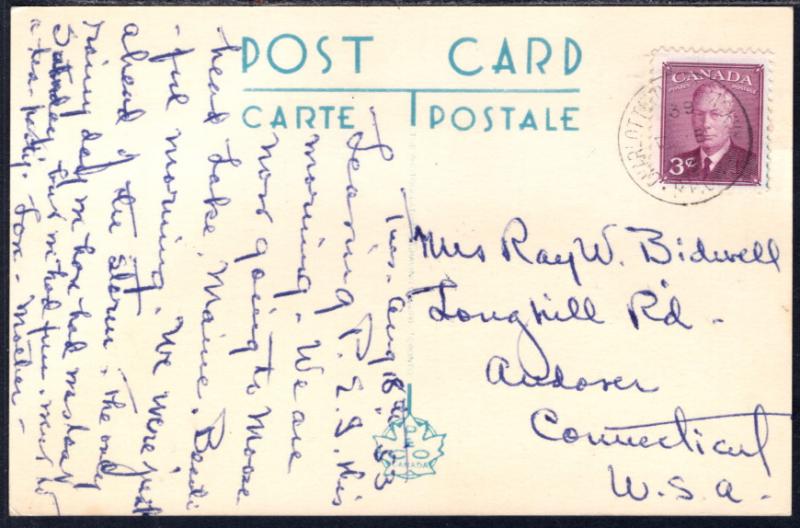 POST CARD
CARTE POSTALE
CANADA
POSTES POSTAGE
3¢
CHARLOTTE
Tues. Aug 18 53
Leaving P.E.I. this
morning. We are
now going to Moose
head Lake, Maine. Beauti
-ful morning. We were just
ahead of the storm. The only
rainy day we have had was last
Saturday but we had fun, went to
a tea-party. Love - Mother -
Mrs Ray W. Bidwell
Longhill Rd.
Andover
Connecticut
U.S.A.
CANADA